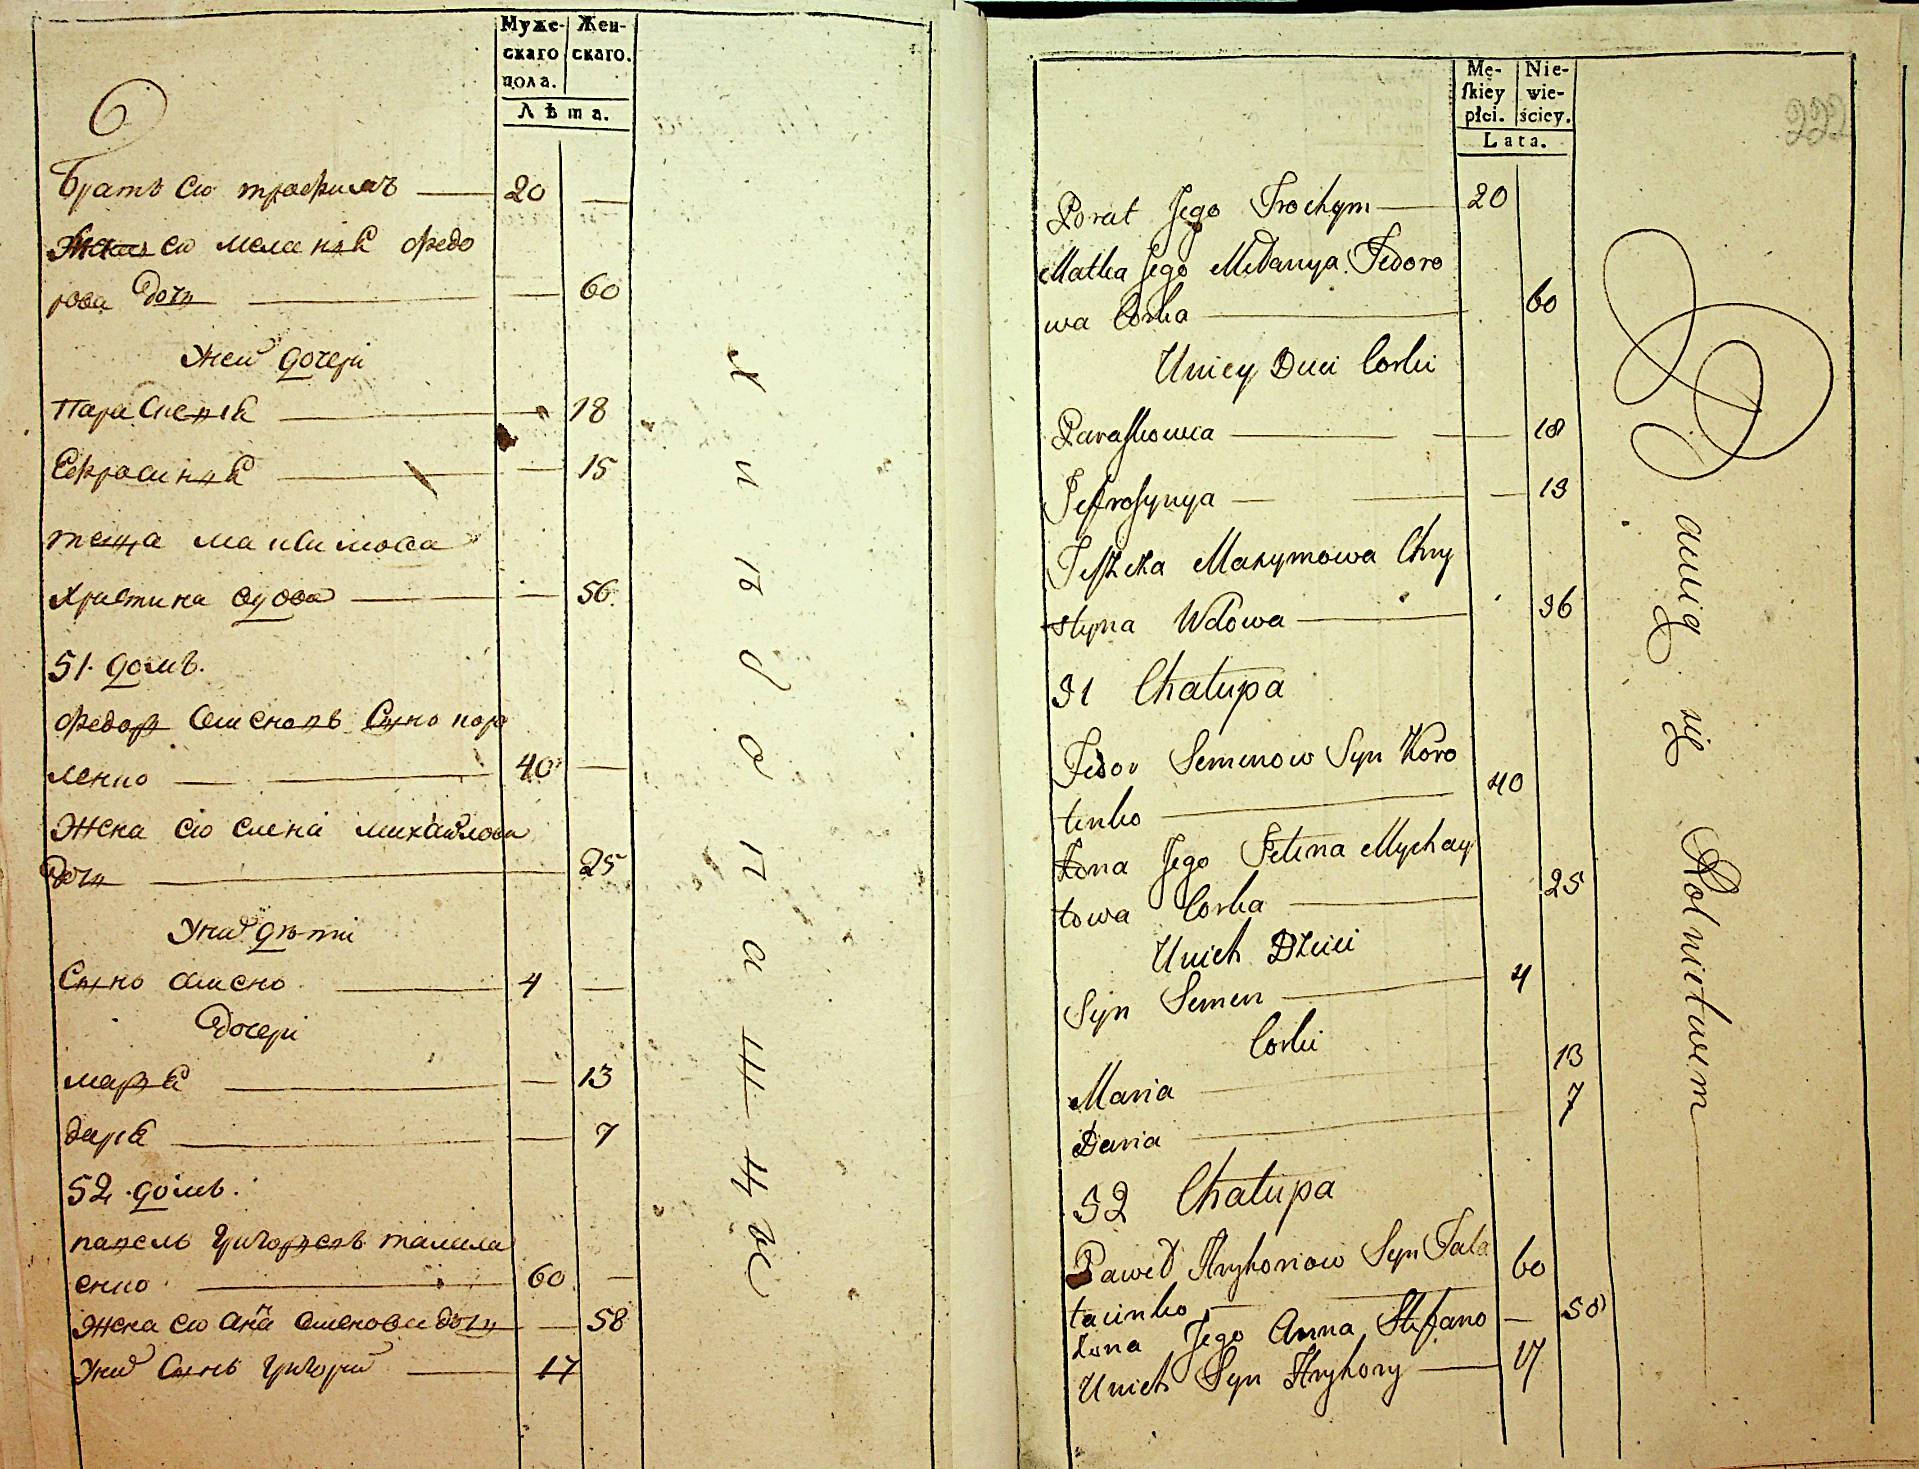 Муже-
скаго
пола.
Жен-
скаго.
Лѣта.
Братъ его трофимъ 20
его меланія федо
рова дочь 60
Унеи дочери
параскевія 18
Ефросинія 15
теща максимова
христина вдова 56
51. домъ.
федоръ семеновъ сынъ коро
тенко 40
Жена его елена михайлова
дочь 25
Унихъ дѣти
Сынъ семенъ 4
дочери
марія 13
дарія 7
52. домъ.
павелъ григорьевъ талала
енко 60
Жена его анна семенова дочь 58
Унихъ Сынъ григорій 17
хлѣбопашцы
Mę-
skiey
płci.
Nie-
wie-
ściey.
Lata.
222
Borat Jego Trochym 20
Matka Jego Melanya Fedoro
wa Corka 60
Uniey Dwi Corki
Paraskowia 18
Jefrosynya 15
Teszcza Maxymowa Chry
styna Wdowa 56
51 Chałupa
Fedor Semenow Syn Koro
tenko 40
Żona Jego Jelena Mychay
łowa Corka 25
Unich Dzieci
Syn Semen 4
Corki
Maria 13
Daria 7
52 Chałupa
Paweł Hryhoriow Syn Tala
łaienko 60
Żona Jego Anna Stefano 58
Unich Syn Hryhory 17
Bawią się Rolnictwem